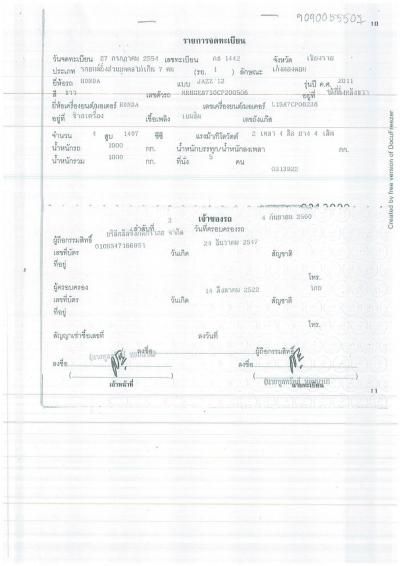 9090055501
10
รายการจดทะเบียน
วันจดทะเบียน 27 กรกฎาคม 2554 เลขทะเบียน กธ 1442 จังหวัด เชียงราย
ประเภท รถยนต์นั่งส่วนบุคคลไม่เกิน 7 คน (รย. 1 ) ลักษณะ เก๋งสองตอน
ยี่ห้อรถ HONDA แบบ JAZZ'12 รุ่นปี ค.ศ. 2011
สี ขาว เลขตัวรถ อยู่ที่
ยี่ห้อเครื่องยนต์/มอเตอร์ HONDA เลขเครื่องยนต์/มอเตอร์
อยู่ที่ ข้างเครื่อง เชื้อเพลิง เบนซิน เลขถังแก๊ส
จำนวน 4 สูบ 1497 ซีซี แรงม้า/กิโลวัตต์ 2 เพลา 4 ล้อ ยาง 4 เส้น
น้ำหนักรถ 1000 กก. น้ำหนักบรรทุก/น้ำหนักลงเพลา กก.
น้ำหนักรวม 1000 กก. ที่นั่ง 5 คน
0313922
เจ้าของรถ
ลำดับที่ 3 วันที่ครอบครองรถ 4 กันยายน 2560
ผู้ถือกรรมสิทธิ์
เลขที่บัตร วันเกิด 24 ธันวาคม 2547 สัญชาติ
ที่อยู่
โทร.
ผู้ครอบครอง
เลขที่บัตร วันเกิด 14 สิงหาคม 2522 สัญชาติ ไทย
ที่อยู่
โทร.
สัญญาเช่าซื้อเลขที่ ลงวันที่
ลงชื่อ ผู้ถือกรรมสิทธิ์
ลงชื่อ ลงชื่อ
( ) ( )
เจ้าหน้าที่ นายทะเบียน
11
Created by free version of DocuFreezer